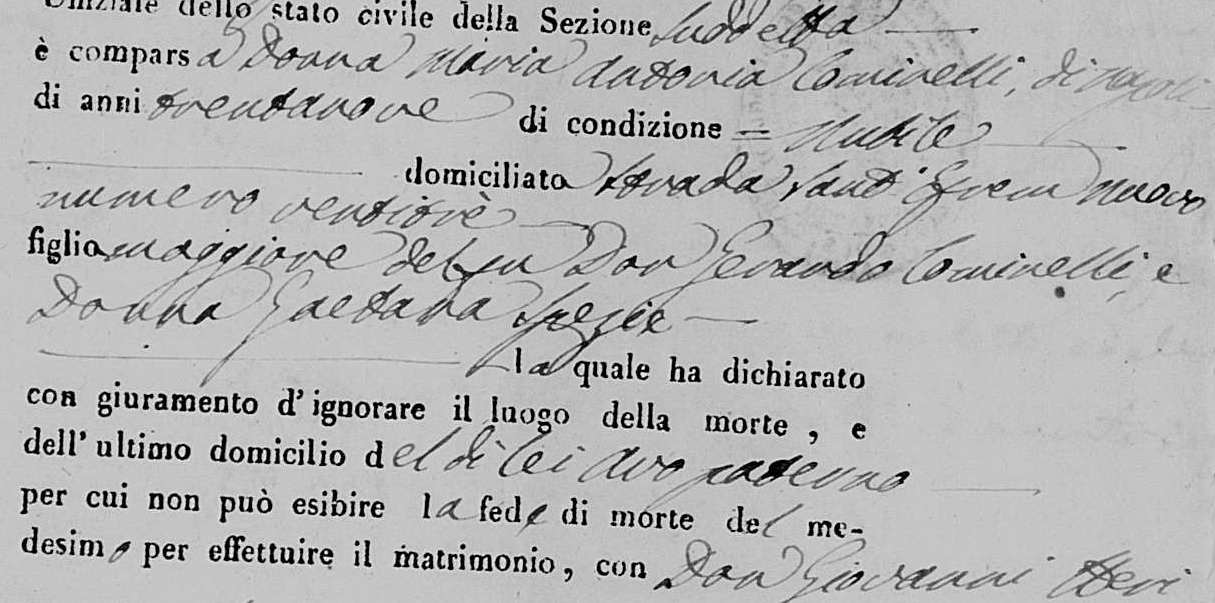 Uffiziale dello stato civile della Sezione suddetta
è comparsa Donna Maria Antonia Cominelli, di Napoli
di anni trentanove di condizione = Nubile
domiciliata strada Sant'Efrem nuovo
numero ventitrè
figlia maggiore del fu Don Gerardo Cominelli, e
Donna Gaetana
la quale ha dichiarato
con giuramento d'ignorare il luogo della morte, e
dell'ultimo domicilio del di lei avo paterno
per cui non può esibire la fede di morte del me-
desimo per effettuire il matrimonio, con Don Giovanni